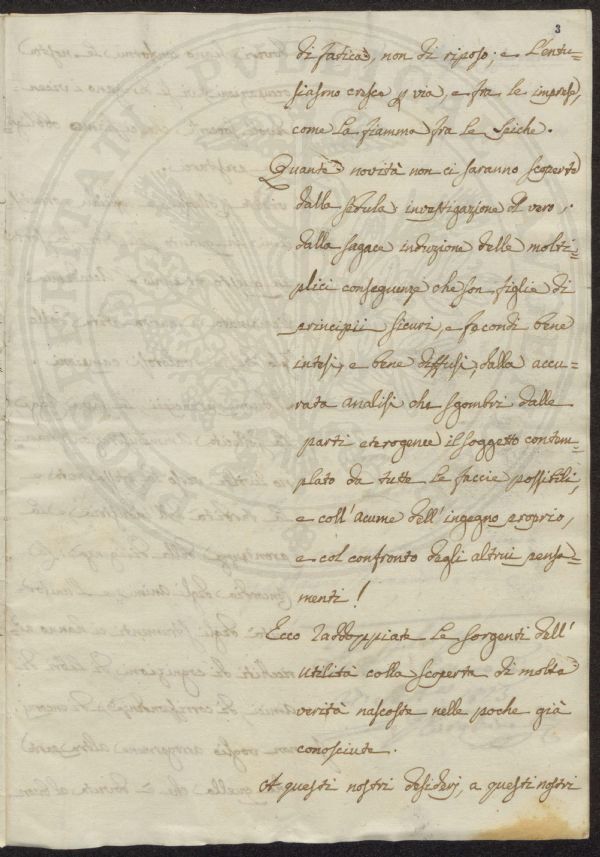 3
di fatica, non di riposo; e l'entu=
siasmo cresce p via, e fra le imprese,
come la fiamma fra le seiche.
Quante novità non ci saranno scoperte
dalla sedula investigazione del vero,
dalla sagace induzione delle molti=
plici conseguenze che son figlie di
principii sicuri, e facondi bene
intesi, e bene diffusi, dalla accu=
rata analisi che sgombri dalle
parti eterogenee il soggetto contem=
plato da tutte le faccie possibili,
e coll'acume dell'ingegno proprio,
e col confronto degli altrui pensa=
menti!
Ecco raddoppiate le sorgenti dell'
utilità colla scoperta di molte
verità nascoste nelle poche già
conosciute.
A questi nostri desiderj, a questi nostri